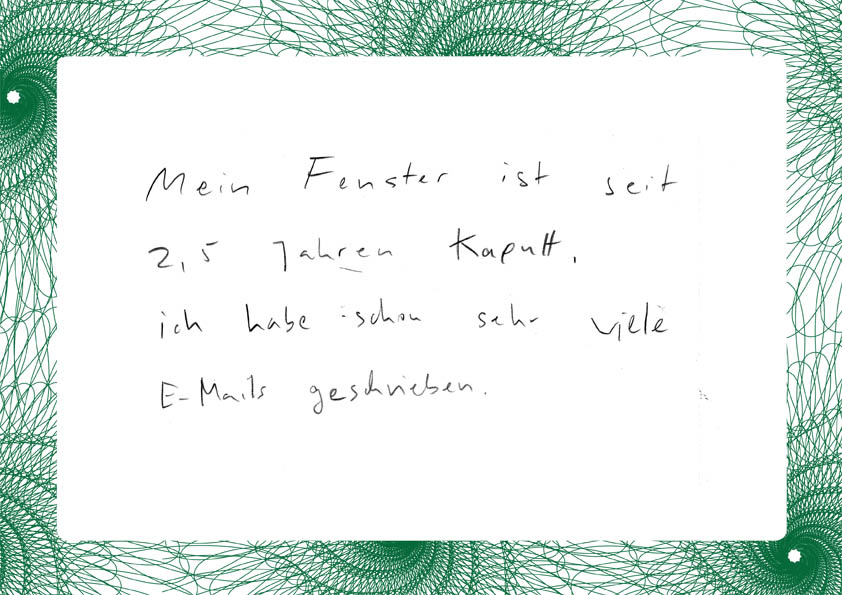 Mein Fenster ist seit
2,5 Jahren kaputt,
ich habe schon sehr viele
E-Mails geschrieben.